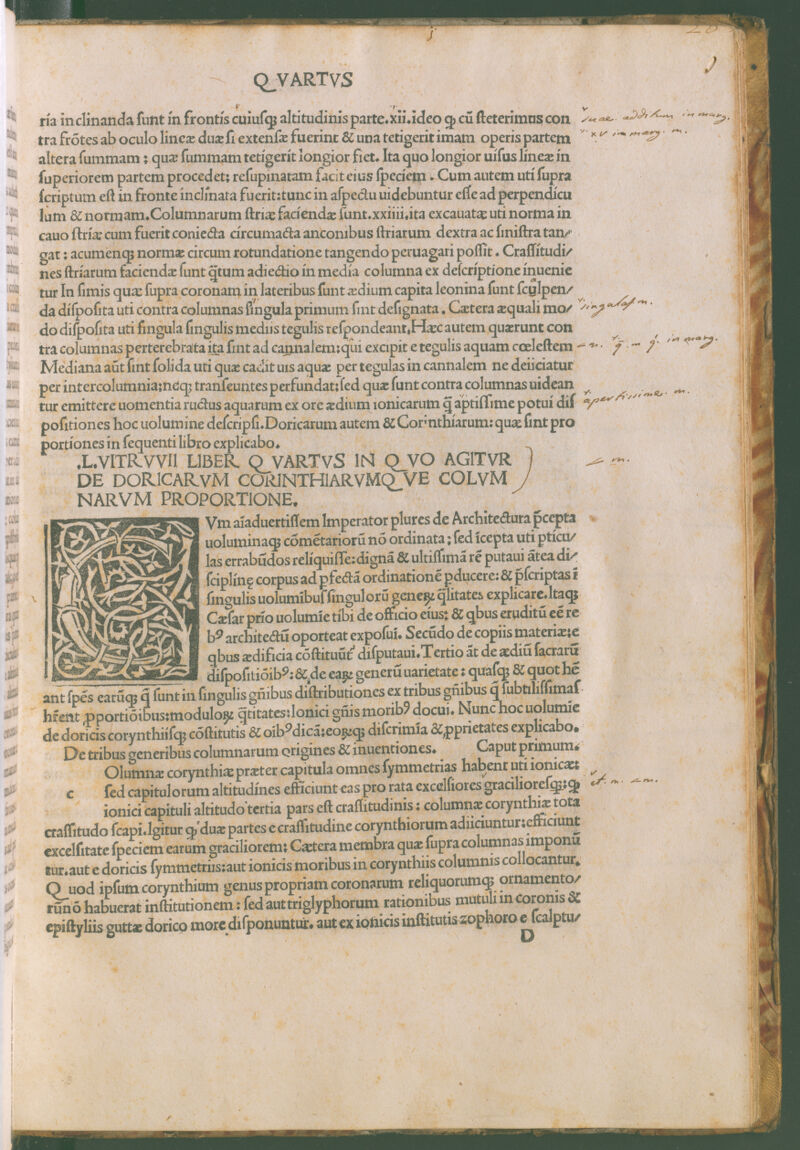 Q VARTVS
ria inclinanda sunt in frontis cuiusq; altitudinis parte.xii.ideo ꝙ cū steterimus con
tra frōtes ab oculo lineæ duæ si extensæ fuerint & una tetigerit imam operis partem
altera summam : quæ summam tetigerit longior fiet. Ita quo longior uisus lineæ in
superiorem partem procedet: resupinatam facit eius speciem . Cum autem uti supra
scriptum est in fronte inclinata fuerit:tunc in aspectu uidebuntur esse ad perpendicu
lum & normam.Columnarum striæ faciendæ sunt.xxiiii.ita excauatæ uti norma in
cauo striæ cum fuerit coniecta circumacta anconibus striarum dextra ac sinistra tan/
gat : acumenq; normæ circum rotundatione tangendo peruagari possit . Crassitudi/
nes striarum faciendæ sunt q̄tum adiectio in media columna ex descriptione inuenie
tur In simis quæ supra coronam in lateribus sunt ædium capita leonina sunt sculpen/
da disposita uti contra columnas singula primum sint designata . Cætera æquali mo/
do disposita uti singula singulis mediis tegulis respondeant,Hæc autem quærunt con
tra columnas perterebrata ita sint ad cannalem:qui excipit e tegulis aquam cœlestem
Mediana aūt sint solida uti quæ cadit uis aquæ per tegulas in cannalem ne deiiciatur
per intercolumnia:neq; transeuntes perfundat:sed quæ sunt contra columnas uidean
tur emittere uomentia ructus aquarum ex ore ædium ionicarum q̄ aptissime potui dis
positiones hoc uolumine descripsi.Doricarum autem & Corinthiarum: quæ sint pro
portiones in sequenti libro explicabo.
.L.VITRVVII LIBER Q VARTVS IN Q VO AGITVR
DE DORICARVM CORINTHIARVMQ VE COLVM
NARVM PROPORTIONE.
Vm aīaduertissem Imperator plures de Architectura p̄cepta
uoluminaq; cōmētariorū nō ordinata ; sed īcepta uti pticu/
las errabūdos reliquisse:dignā & ultissimā rē putaui ātea di/
sciplinę corpus ad pfectā ordinationē pducere: & p̄scriptas ī
singulis uolumibus singulorū geneꝝ q̄litates explicare.Itaq;
Cæsar prio uolumie tibi de officio eius: & qbus eruditū eē re
bꝰ architectū oporteat exposui. Secūdo de copiis materiæ:e
qbus ædificia cōstituūt disputaui.Tertio āt de ædiū sacrarū
dispositiōibꝰ: & de eaꝝ generū uarietate : quasq; & quot hē
ant spēs earūq; q̄ sunt in singulis gn̄ibus distributiones ex tribus gn̄ibus q̄ subtilissimas
hr̄ent ꝓportiōibus:moduloꝝ q̄titates:Ionici gn̄is moribꝰ docui. Nunc hoc uolumie
de doricis corynthiisq; cōstitutis & oibꝰ dicā:eoꝝq; discrimīa &ꝓprietates explicabo.
De tribus generibus columnarum origines & inuentiones. Caput primum.
Olumnæ corynthiæ præter capitula omnes symmetrias habent uti ionicæ:
c sed capitulorum altitudines efficiunt eas pro rata excelsiores gracilioresq;:ꝙ
ionici capituli altitudo tertia pars est crassitudinis : columnæ corynthiæ tota
crassitudo scapi.Igitur ꝙ duæ partes e crassitudine corynthiorum adiiciuntur:efficiunt
excelsitate speciem earum graciliorem: Cætera membra quæ supra columnas imponū
tur.aut e doricis symmetriis:aut ionicis moribus in corynthiis columnis collocantur.
Q uod ipsum corynthium genus propriam coronarum reliquorumq; ornamento/
rūnō habuerat institutionem : sed aut triglyphorum rationibus mutuli in coronis &
epistyliis guttæ dorico more disponuntur. aut ex ionicis institutis zophoro e scalptu/
D